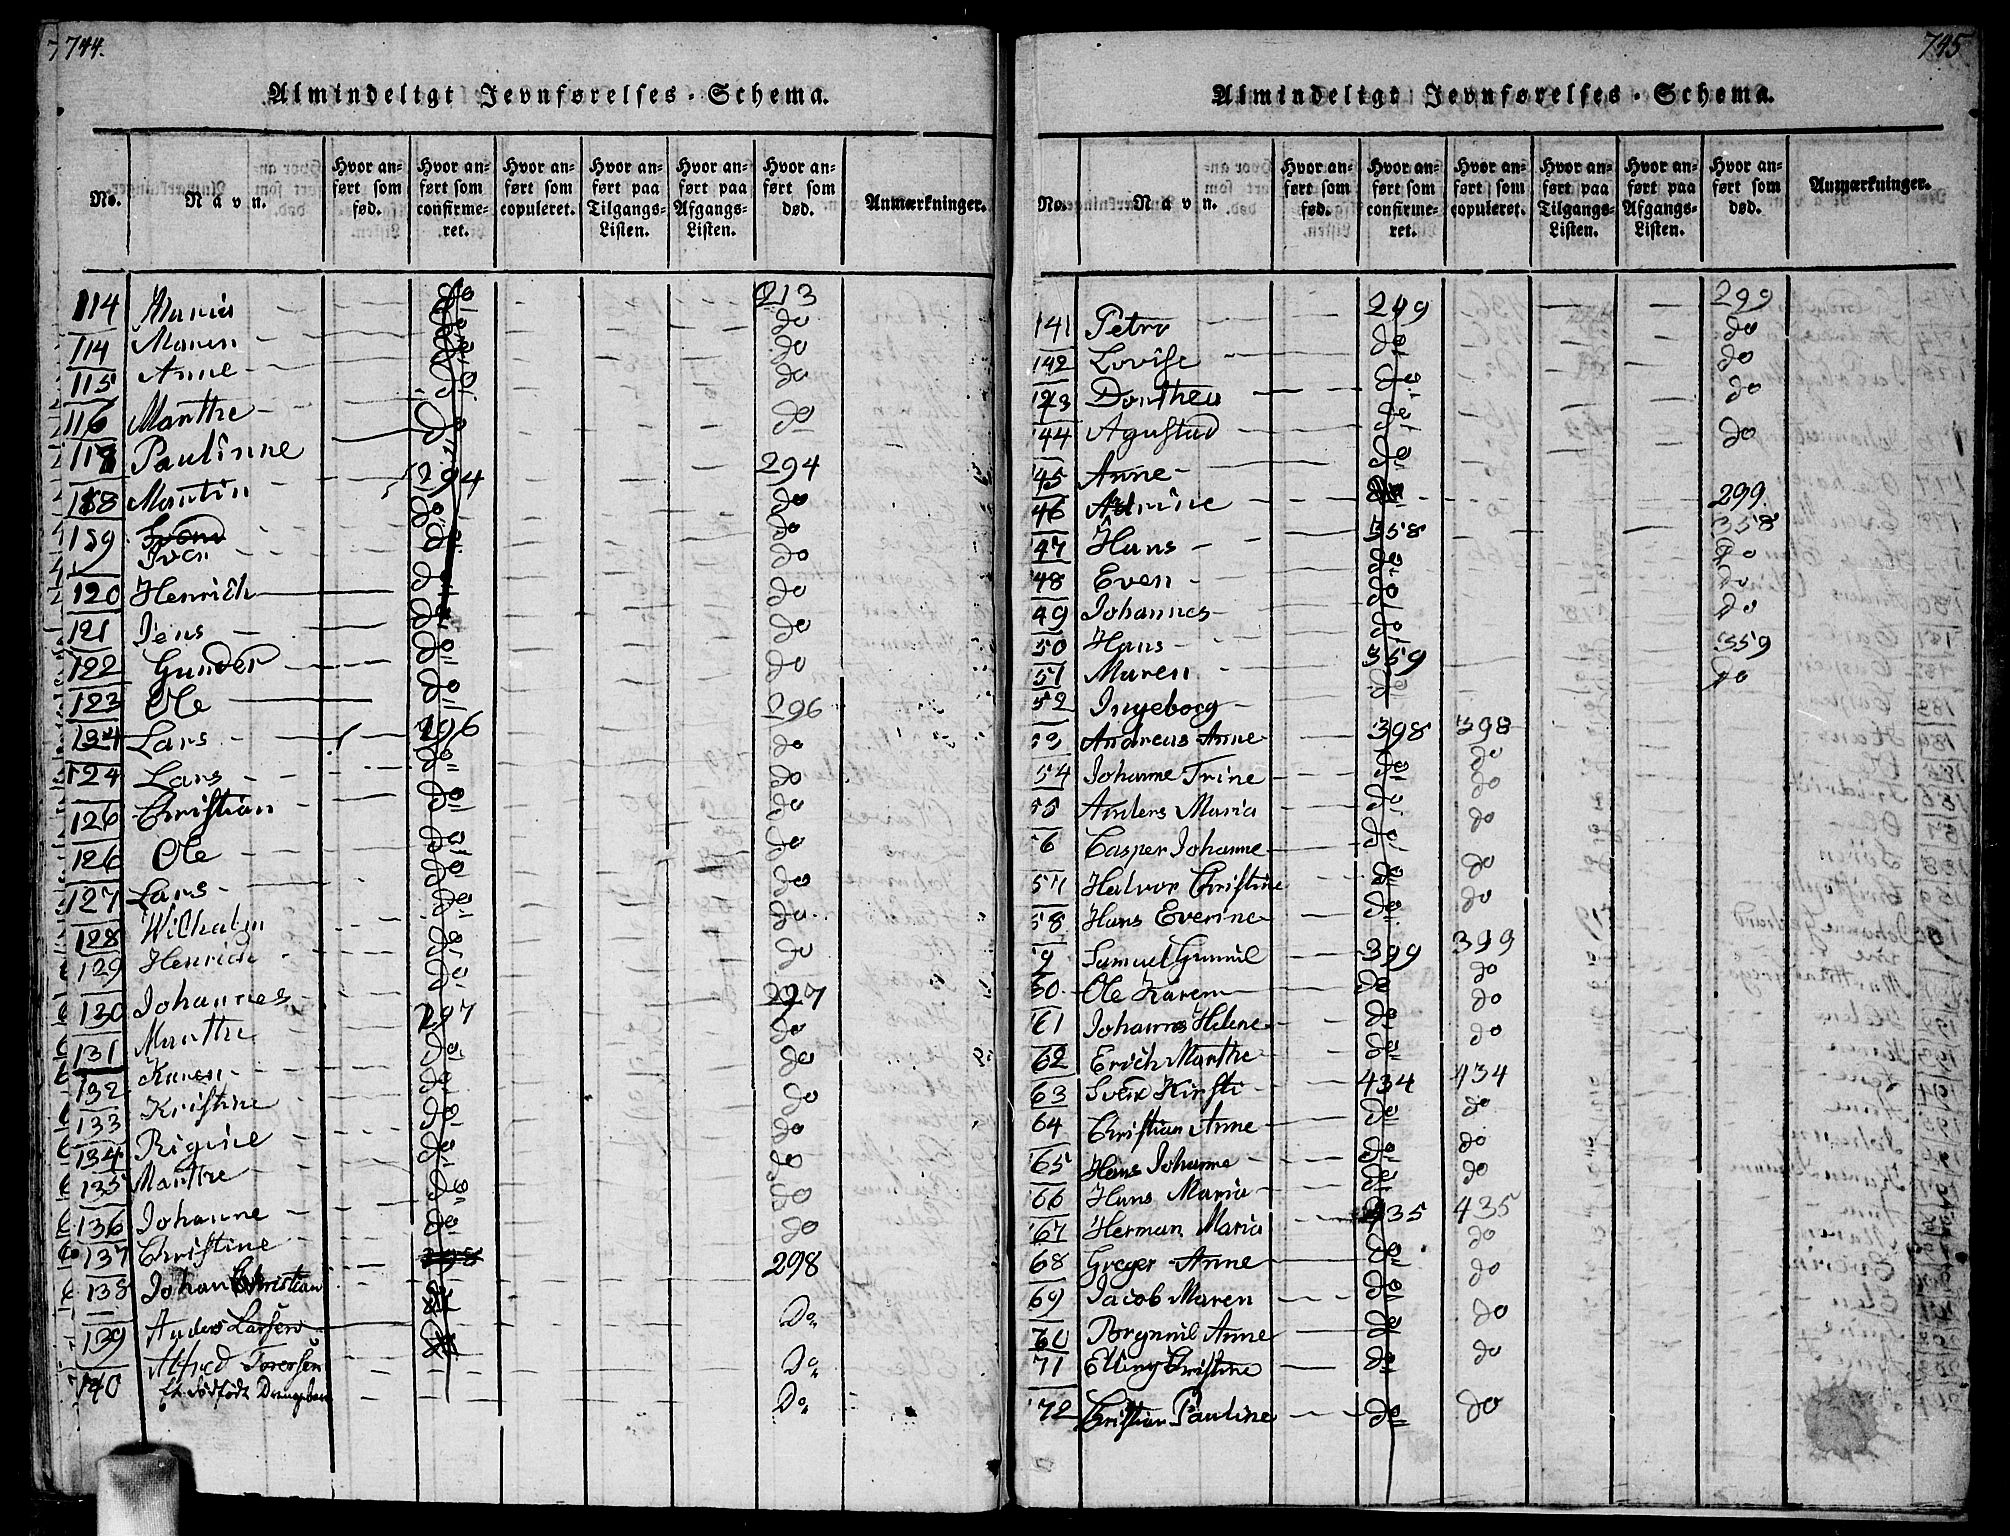 744.
Almindeligt Jevnførelses-Schema.
No. Navn. Hvor anført som fød. Hvor anført som confirmeret. Hvor anført som copuleret. Hvor anført paa Tilgangs-Listen. Hvor anført paa Afgangs-Listen. Hvor anført som død. Anmærkninger.
114 Maria do 213
114 Maren do do
115 Anne do do
116 Marthe do do
Paulinne do do
Martin 294 294
119 Iver do do
120 Henrich do do
121 Jens do do
122 Gunder do do
123 Ole do do
Lars 296 296
124 Lars do do
126 Christian do do
126 Ole do do
127 Lars do do
128 Wilhalm do do
129 Henrich do do
130 Johannes do 297
131 Marthe 297 do
132 Karen do do
133 Kristine do do
134 Rigine do do
135 Marthe do do
136 Johanne do do
137 Christine do do
138 Johan Christian 298
139 Anders Larsen Do
Alfred Toresen Do
140 Et dødfødt Drengebarn Do
745
Almindeligt Jevnførelses-Schema.
No. Navn. Hvor anført som fød. Hvor anført som confirmeret. Hvor anført som copuleret. Hvor anført paa Tilgangs-Listen. Hvor anført paa Afgangs-Listen. Hvor anført som død. Anmærkninger.
141 Petra 299 299
142 Lovise do do
Dorthea do do
144 Agustad do do
45 Anne do do
46 299
47 Hans 358 358
48 Even do do
49 Johannes do do
50 Hans do do
51 Maren 359 359
52 Ingeborg do do
53 Andreas Anne 398 398
54 Johanne Trine do do
55 Anders Maria do do
56 Casper Johanne do do
57 Halvor Christine do do
58 Hans Everine do do
59 Samuel Gunnil 399 399
Ole Karen do do
61 Johannes Helene do do
62 Erich Marthe do do
63 Svein Kirsti 434 434
64 Christian Anne do do
65 Hans Johanne do do
66 Hans Maria do do
67 Herman Maria 435 435
68 Greger Anne do do
69 Jacob Maren do do
70 Torgnuil Anne do do
71 Elling Christine do do
72 Christian Pauline do do